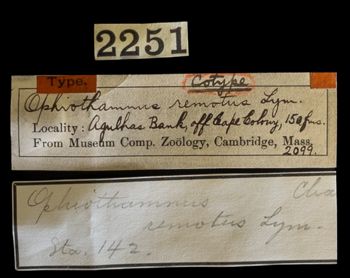 2251
Type. Cotype
Ophiothamnus remotus Lym.
Locality: Agulhas Bank, off Cape Colony, 150 fms.
From Museum Comp. Zoölogy, Cambridge, Mass.
2099.
Ophiothamnus Cha
remotus Lym.
Sta. 142.